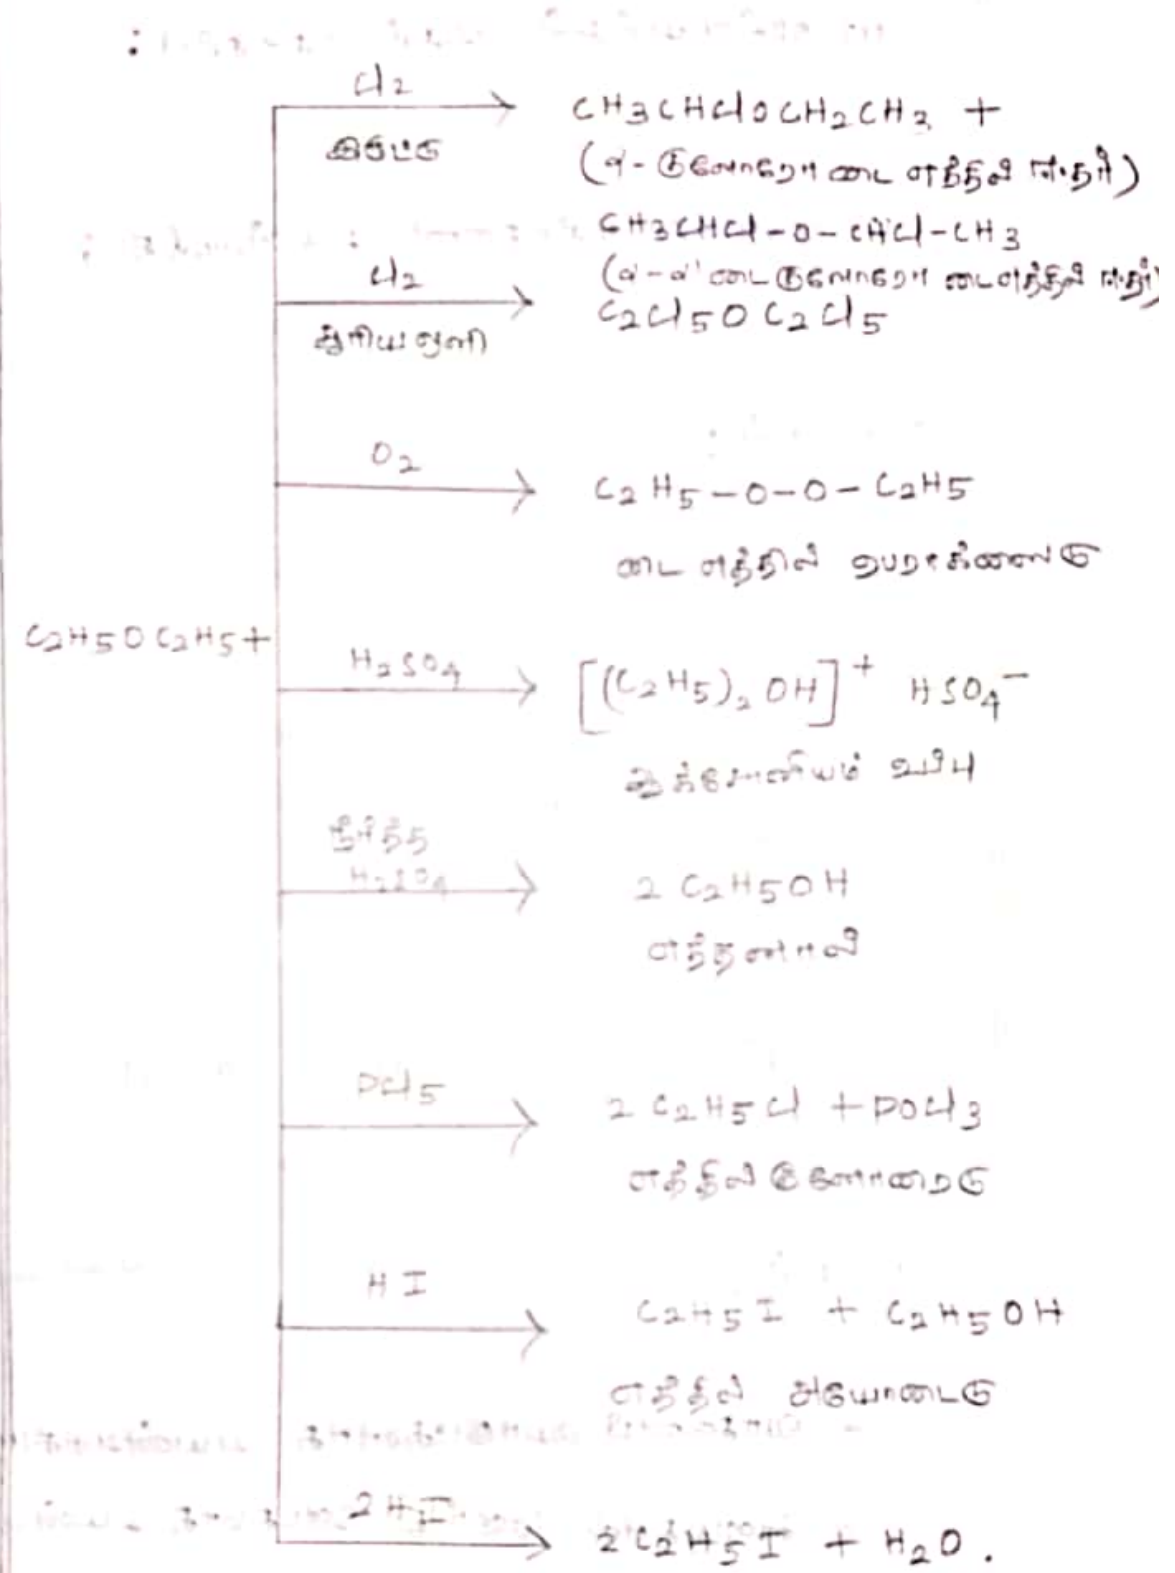 Cl2
இருட்டு
CH3CHClOCH2CH3 +
(α-குளோரோ டை எத்தில் ஈதர்)
CH3CHCl-O-CHCl-CH3
(α-α' டை குளோரோ டை எத்தில் ஈதர்)
Cl2
சூரிய ஒளி
C2Cl5OC2Cl5
O2
C2H5-O-O-C2H5
டை எத்தில் பெராக்ஸைடு
C2H5OC2H5+
H2SO4
[(C2H5)2OH]+ HSO4-
ஆக்சோனியம் உப்பு
நீர்த்த
H2SO4
2C2H5OH
எத்தனால்
PCl5
2C2H5Cl + POCl3
எத்தில் குளோரைடு
HI
C2H5I + C2H5OH
எத்தில் அயோடைடு
2HI
2C2H5I + H2O.